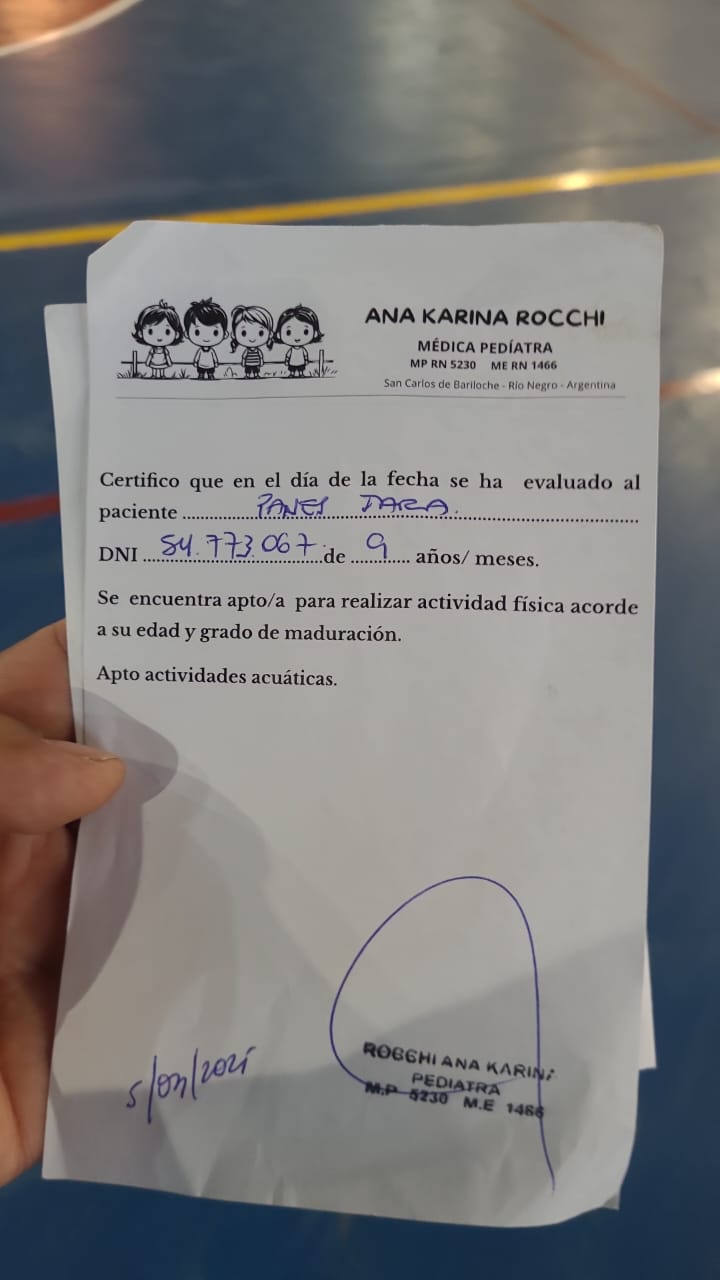 ANA KARINA ROCCHI
MÉDICA PEDÍATRA
MP RN 5230 ME RN 1466
San Carlos de Bariloche - Río Negro - Argentina
Certifico que en el día de la fecha se ha evaluado al
paciente PANES DARA.
DNI 54.773.067 de 9 años/ meses.
Se encuentra apto/a para realizar actividad física acorde
a su edad y grado de maduración.
Apto actividades acuáticas.
ROCCHI ANA KARINA
PEDIATRA
M.P 5230 M.E 1466